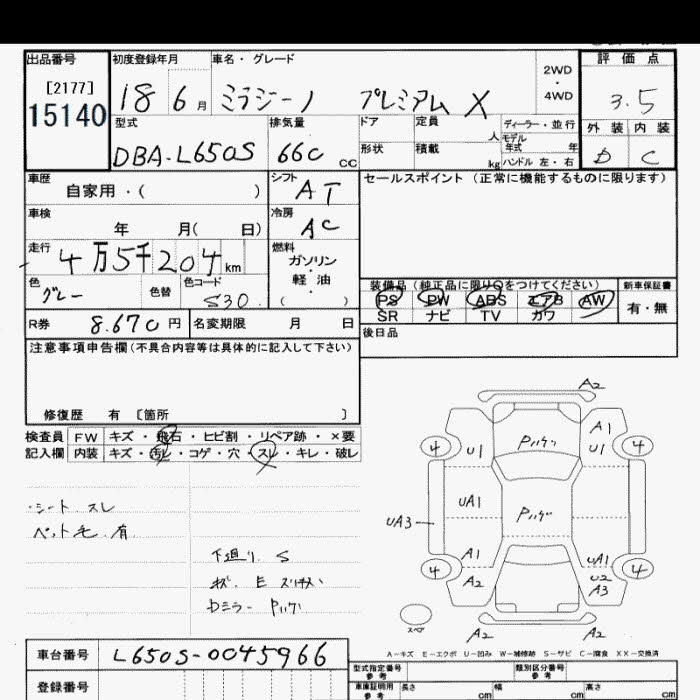 出品番号 初度登録年月 車名・グレード 2WD・4WD 評価点
[2177]
15140 18 6月 ミラジーノ プレミアム X 3.5
型式 排気量 ドア 定員 人 ディーラー・並行 外装 内装
DBA-L650S 660 cc 形状 積載 kg モデル年式 年 D C
ハンドル 左・右
車歴 自家用・( ) シフト AT セールスポイント (正常に機能するものに限ります)
車検 年 月( 日) 冷房 AC
走行 4万5千204km 燃料 ガソリン・軽油・( )
色 グレー 色替 色コード S30
装備品(純正品に限り○をつけてください) 新車保証書
PS PW ABS エアB AW 有・無
SR ナビ TV カワ
R券 8.670円 名変期限 月 日 後日品
注意事項申告欄(不具合内容等は具体的に記入して下さい)
修復歴 有 〔箇所 〕
検査員 FW キズ・飛石・ヒビ割・リペア跡・×要
記入欄 内装 キズ・汚レ・コゲ・穴・スレ・キレ・破レ
・シート スレ
ペット毛 有
下廻り S
E
Dミラー Pハゲ
A2
A1
4 U1 Pハゲ U1 4
UA1
UA3 Pハゲ
A1 UA1
4 A2 U2 4
A3
スペア
A2 A2
A-キズ E-エクボ U-凹み W-補修跡 S-サビ C-腐食 XX-交換済
車台番号 L650S-0045966
型式指定番号 参考 類別区分番号 参考
登録番号 車庫証明用 参考 長さ cm 幅 cm 高さ cm